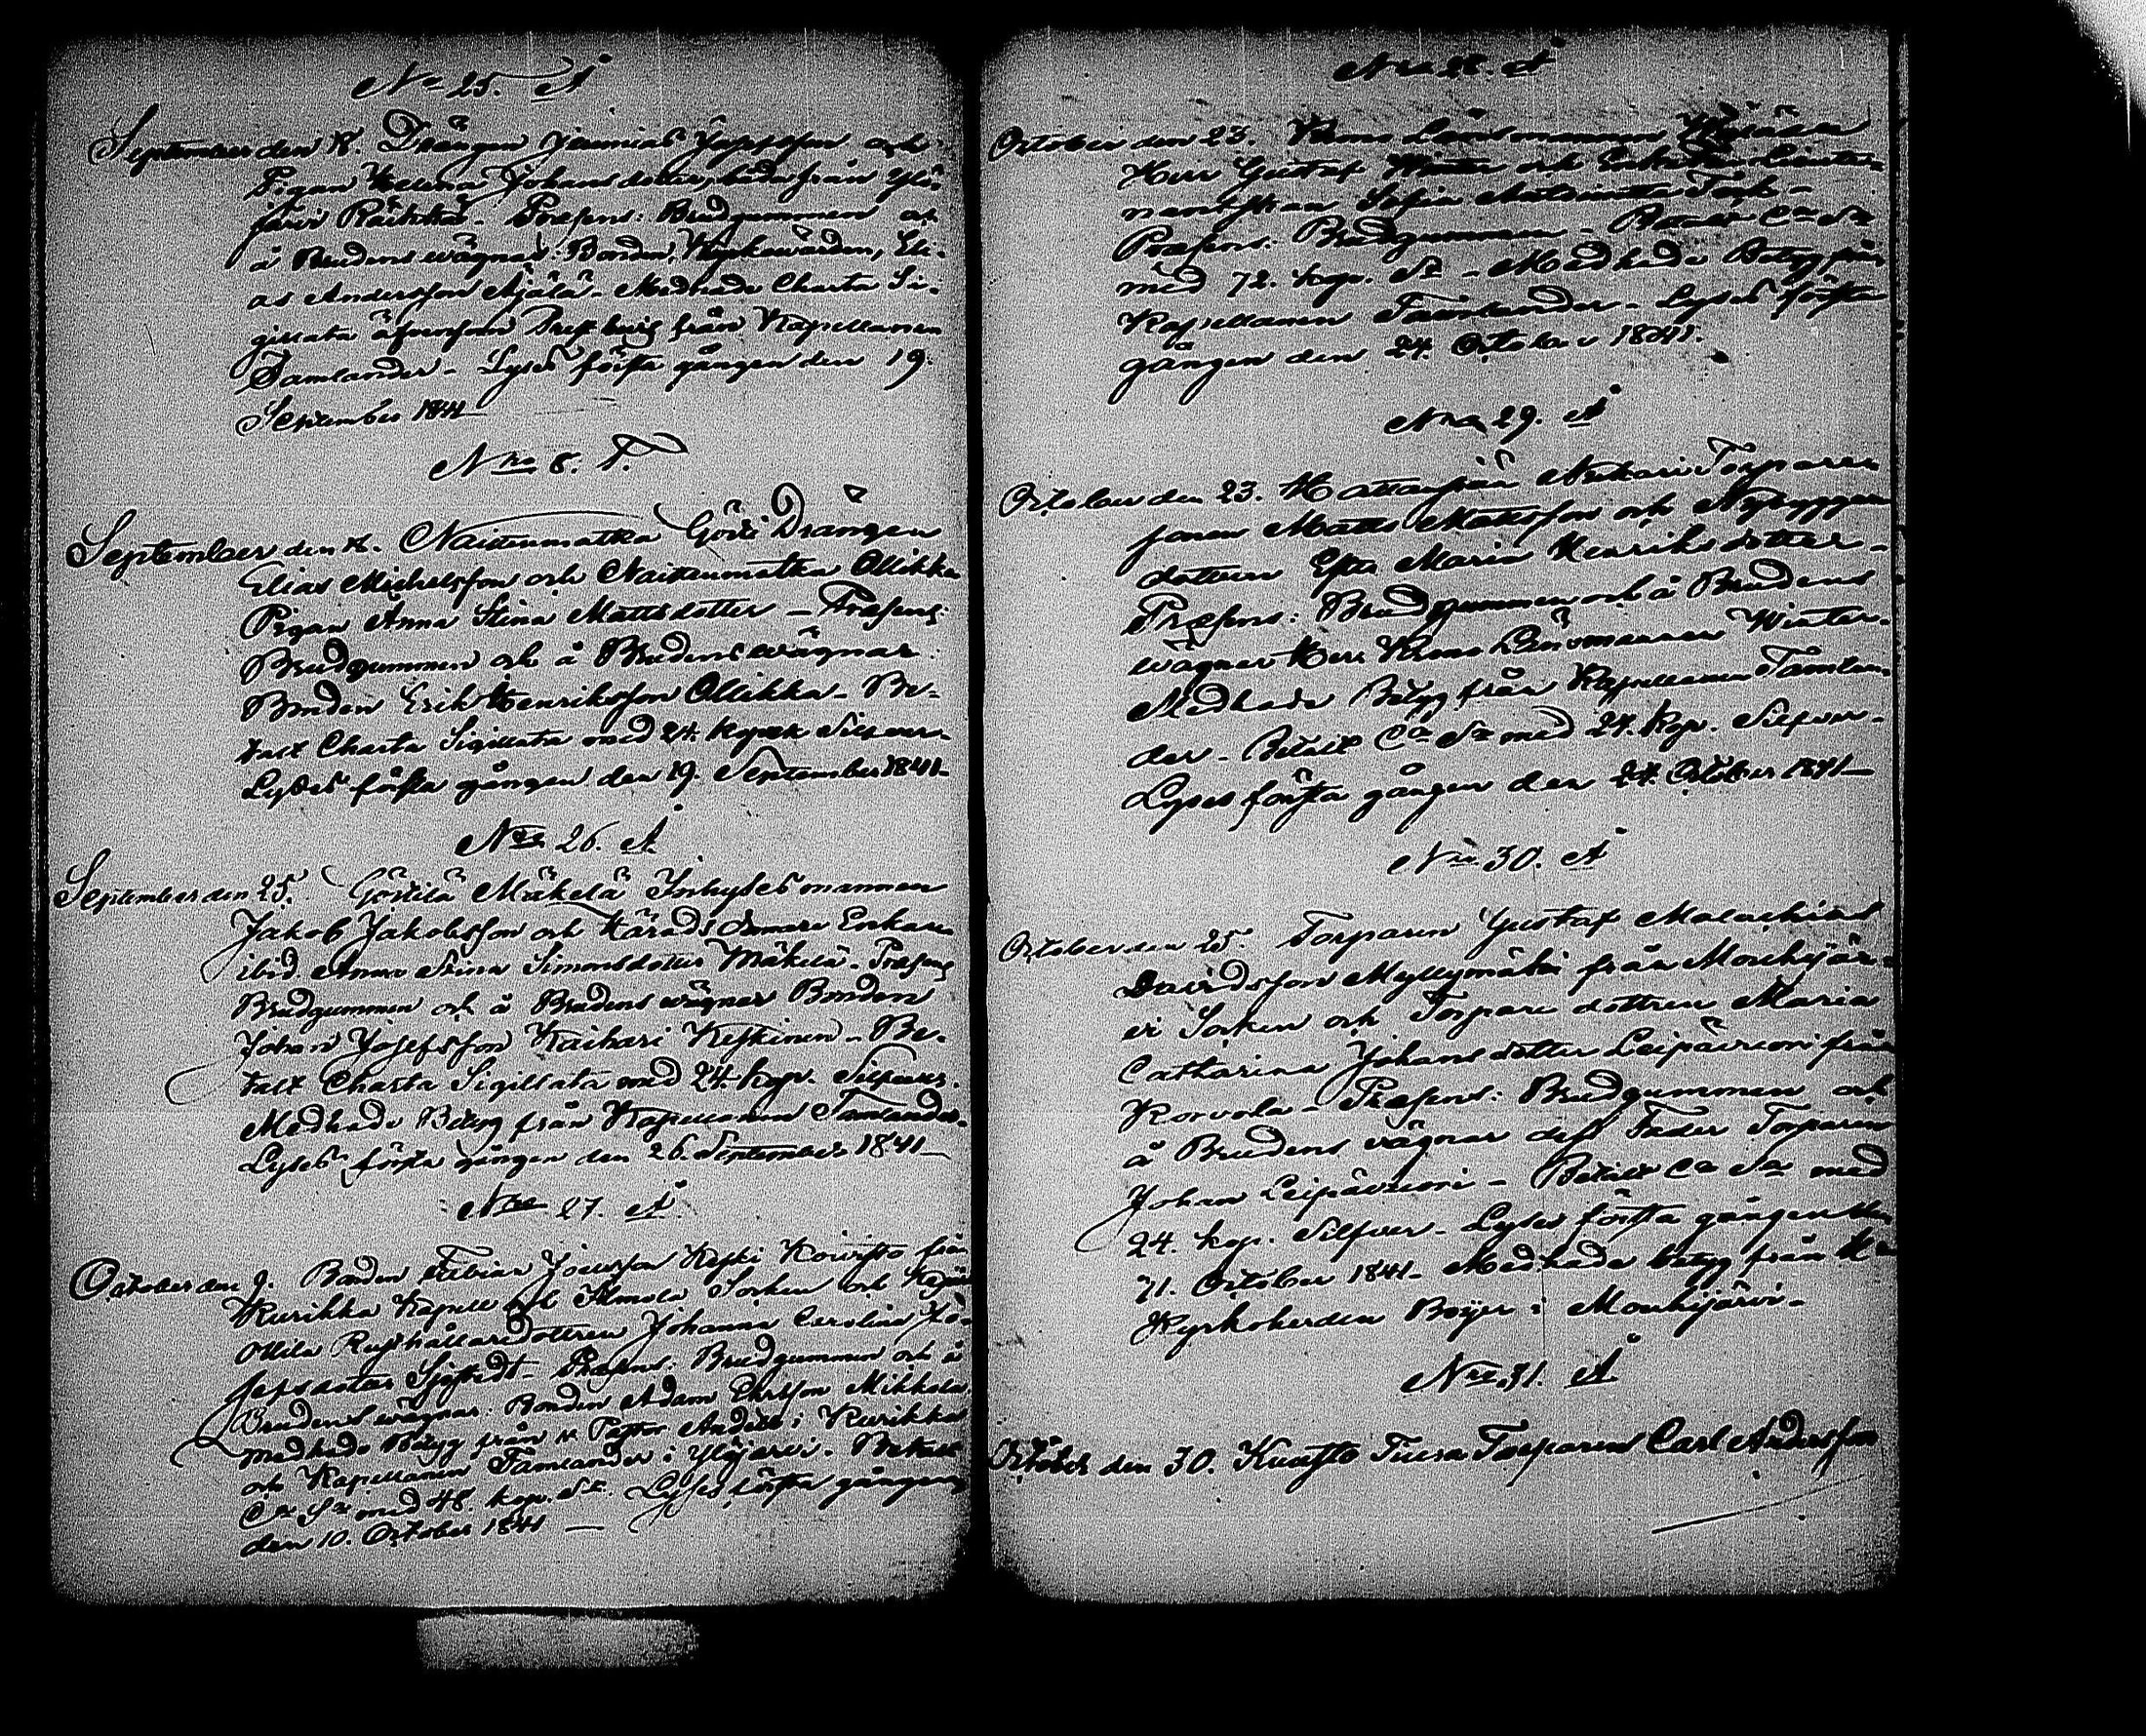 No 25. Å
September den 18. Drängen Jeremias Josefsson och
Pigan Helena Johansdotter, båda från Ylö-
järvi Räikkä - Præsens: Brudgummen och
å Brudens wägnar: Bonden, Kyrkowärden, Eli-
as Andersson Äjälä - Medhade Charta Si-
gillata äfwensom från Kapellanen
Tamlander - Lyses första gången den 19.
September 1841
Nro 8. T.
September den 18. Naistenmatka Göri Drängen
Elias Michelsson och Naistenmatka Ollikka
Pigan Anna Stina Mattsdotter - Præsens:
Brudgummen och å Brudens wägnar:
Bonden Erik Henriksson Ollikka - Be-
talt Charta Sigillata med 24. kopek Silfver.
Lyses första gången den 19. September 1841-
Nro 26. Å
September den 25. Görtilä Mäkelä Inhyses mannen
Jakob Jakobsson och Härads domare Enkan
ibid. Anna Stina Simonsdotter Mäkelä - Præsens
Brudgummen och å Brudens wägnar Bonden
Johan Josefsson Kaihari Keskinen - Be-
talt Charta Sigillata med 24. kop. Silfver.
Medhade Betyg från Kapellanen Tamlander.
Lyses första gången den 26. September 1841-
Nro 27. Å
October den 9. Bonden Fabian Josefsson Keski Koivisto från
Kurikka Kapell och Ilmola Socken och
Ollila Rusthållare dottren Johanna Carolina Jo-
sefsdotter Sjöstedt - Præsens: Brudgummen och å
Brudens wägnar: Bonden Adam Ericsson Mikkola
medhade Betyg från H Pastor i Kurikka
och Kapellanen Tamlander i Ylöjärvi - Betalt
Ca Sa med 48. kop. Sr. Lyses första gången
den 10. October 1841 -
Nro 28. Å
October den 23. Krono Länsmannen
Herr Gustaf Winter och Enke
Sofia
Præsens: Brudgummen - Betalt Ca Sa
med 72. kop. Sr - Medhade Betyg från
Kapellanen Tamlander - Lyses första
gången den 24. October 1841.
Nro 29. Å
October den 23. Torpare
sonen Matts Mattsson och Nybyggare
dottren Efta Maria Henriksdotter -
Præsens: Brudgummen och å Brudens
wägnar Herr Krono Länsmannen Winter.
Medhade Betyg från Kapellanen Tamlan-
der - Betalt Ca Sa med 24. kop. Silfver -
Lyses första gången den 24. October 1841-
Nro 30. Å
October den 25. Torparen Gustaf Malachias
Davidsson Myllymäki från Mouhijär-
vi Socken och Torpare dottren Maria
Catharina Johansdotter Leipävuori från
Korvola - Præsens: Brudgummen och
å Brudens wägnar dess Fader Torparen
Johan Leipävuori - Betalt Ca Sa med
24. kop. Silfver - Lyses första gången den
31. October 1841 - Medhade betyg från Hr
Kyrkoherden Boijer i Mouhijärvi -
Nro 31. Å
October den 30. Tiura Torparen Carl Andersson